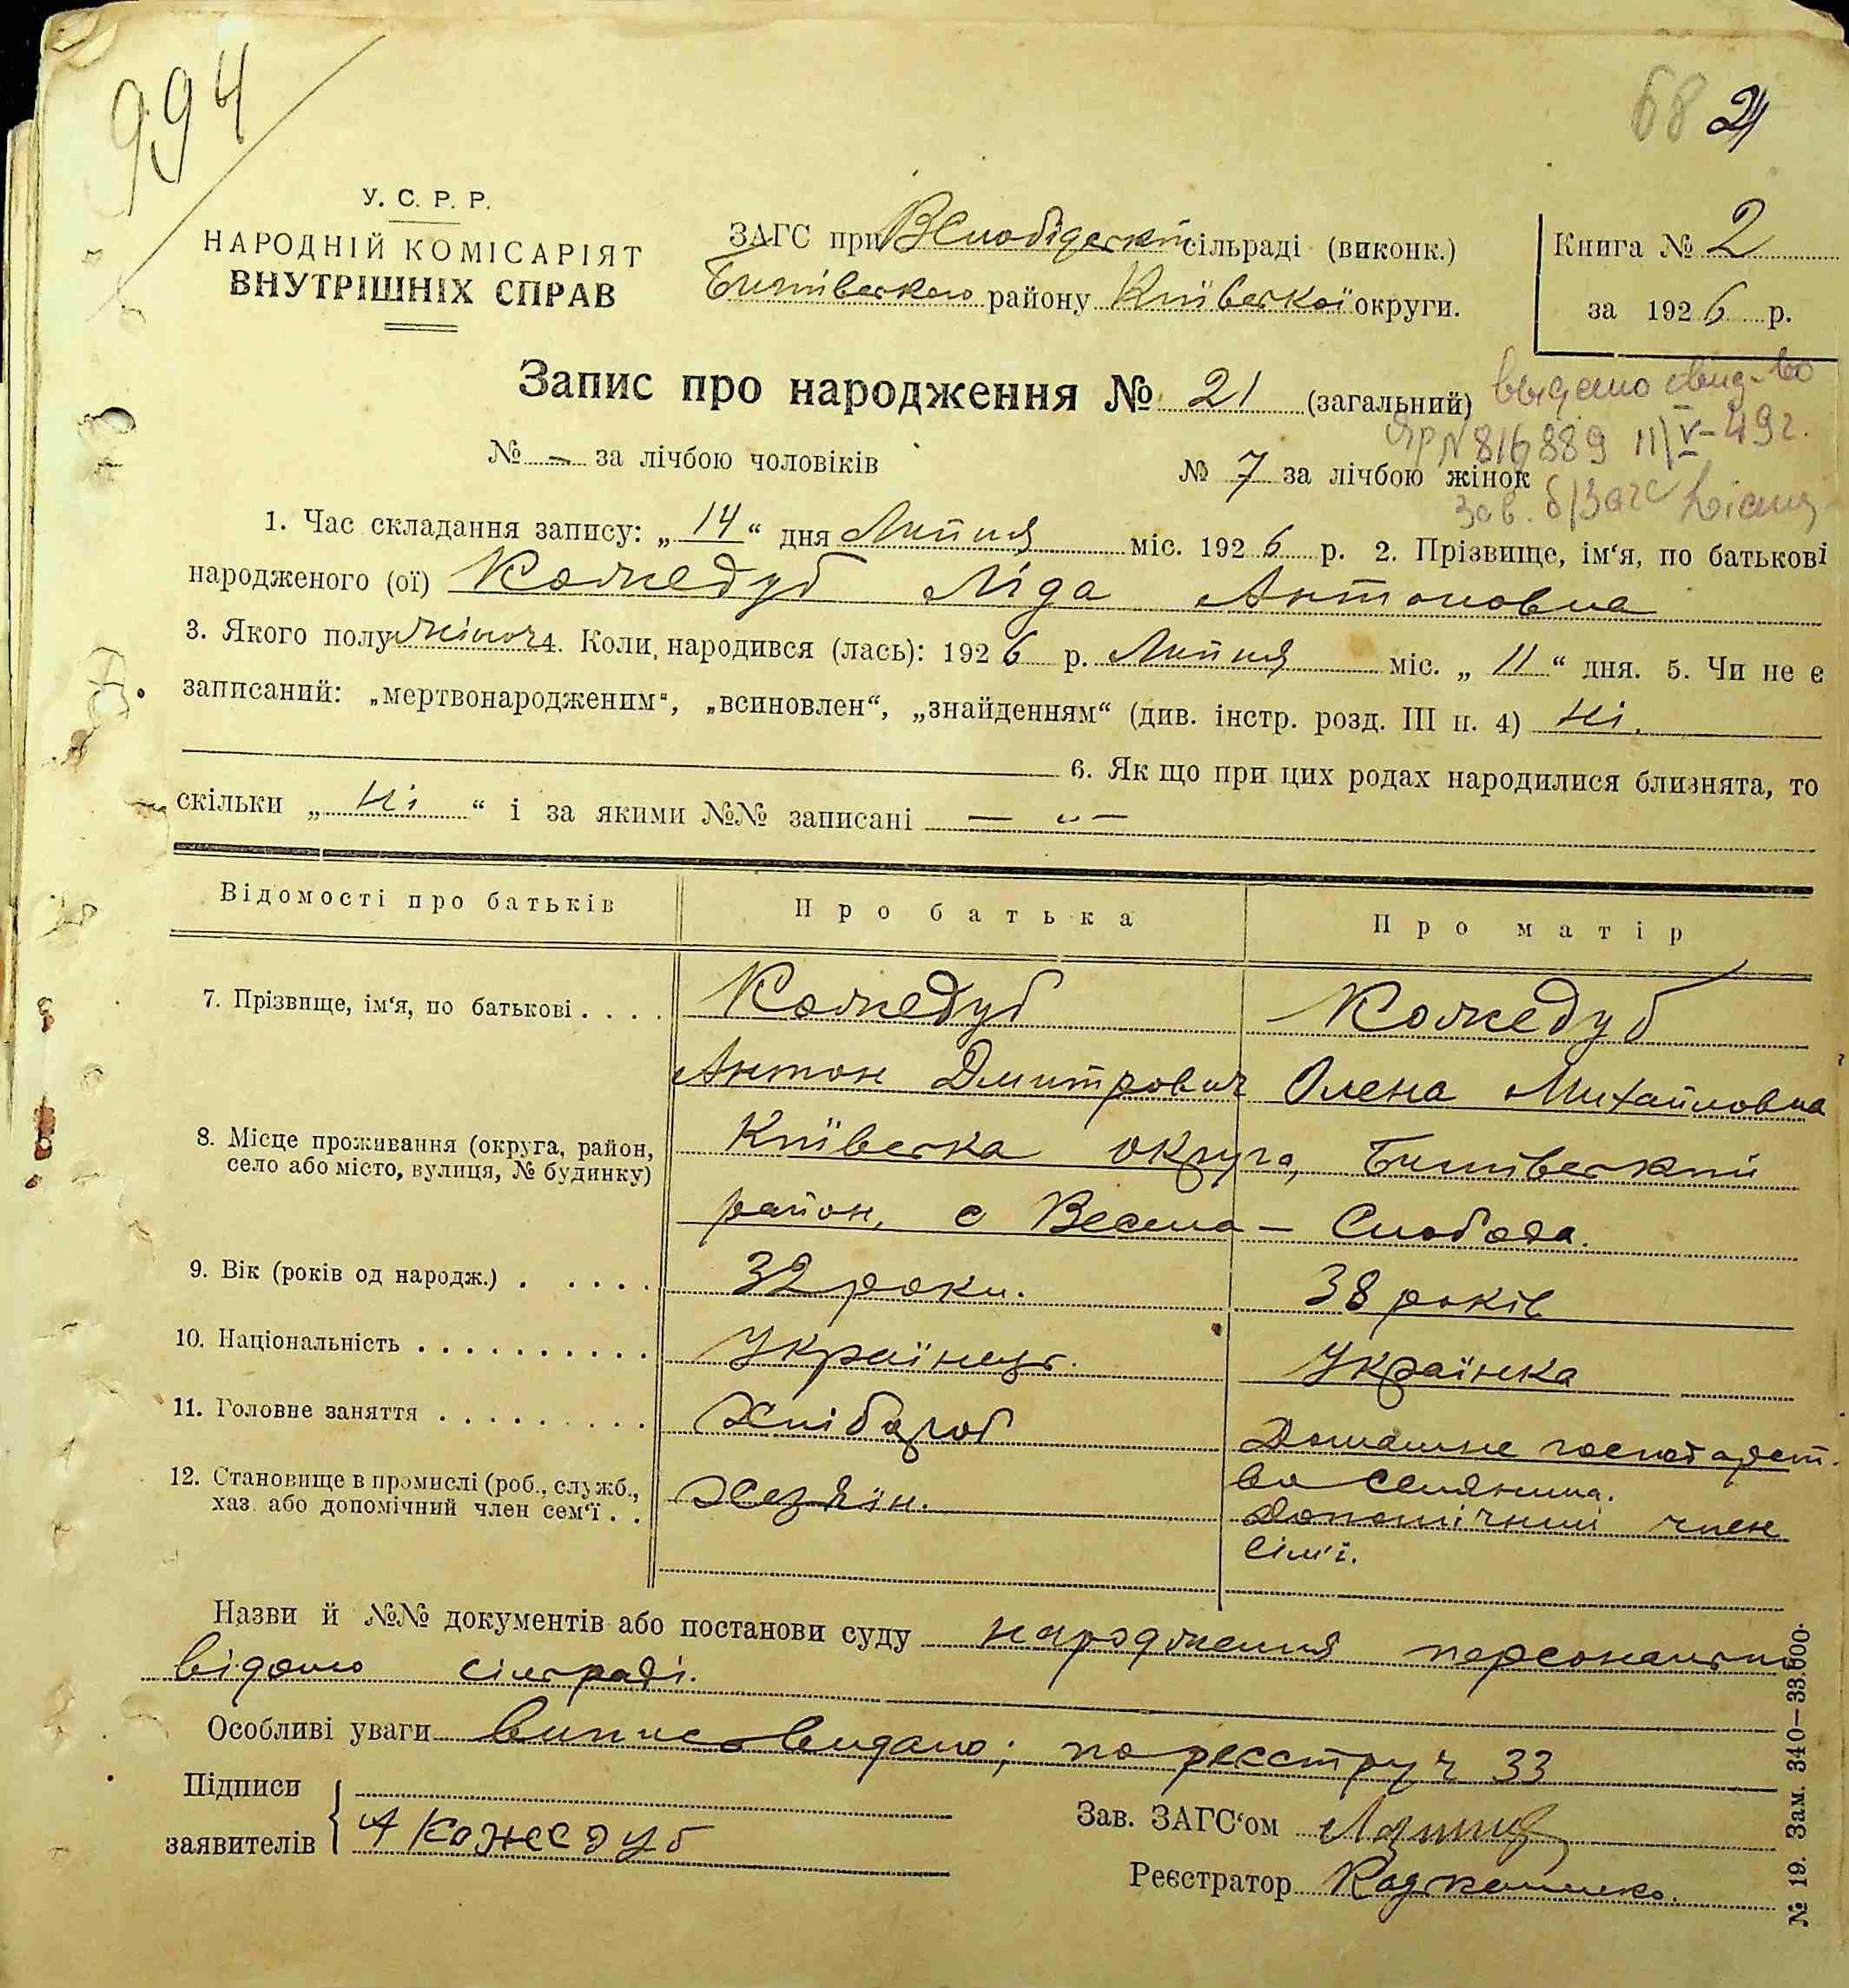 994
68 21
У. С. Р. Р.
НАРОДНІЙ КОМІСАРІЯТ
ВНУТРІШНІХ СПРАВ
ЗАГС при сільраді (виконк.)
району Київської округи.
Книга № 2
за 1926 р.
Запис про народження № 21 (загальний)
видано свид-во
№ 816889 11/V-49г.
№ – за лічбою чоловіків
№ 7 за лічбою жінок
Зав. б/Загс
1. Час складання запису: „14“ дня Липня міс. 1926 р. 2. Прізвище, ім‘я, по батькові
народженого (ої) Кожедуб Ліда Антоновна
3. Якого полу жіноч. 4. Коли народився (лась): 1926 р. Липня міс. „11“ дня. 5. Чи не є
записаний: „мертвонародженим“, „всиновлен“, „знайденням“ (див. інстр. розд. III п. 4) Ні.
6. Як що при цих родах народилися близнята, то
скільки „Ні“ і за якими №№ записані — „ —
Відомості про батьків
Про батька
Про матір
7. Прізвище, ім‘я, по батькові . . . .
Кожедуб
Кожедуб
Антон Дмитрович
Олена Михайловна
8. Місце проживання (округа, район,
село або місто, вулиця, № будинку)
Київська округа, Бишівський
район, с Весела – Слобода.
9. Вік (років од народж.) . . . . .
32 роки.
38 років
10. Національність . . . . . . . . . .
Українець.
Українка
11. Головне заняття . . . . . . . . .
Хлібороб
Домашне господарст-
во селянина.
12. Становище в промислі (роб., служб.,
хаз. або допомічний член сем‘ї . .
Хазяїн.
Допомічний член
сім'ї.
Назви й №№ документів або постанови суду народження персонально
відомо сільраді.
Особливі уваги випис видано; по реєстру ч 33
Підписи
заявителів
А Кожедуб
Зав. ЗАГС‘ом
Реєстратор
№ 19. Зам. 340—33.000.